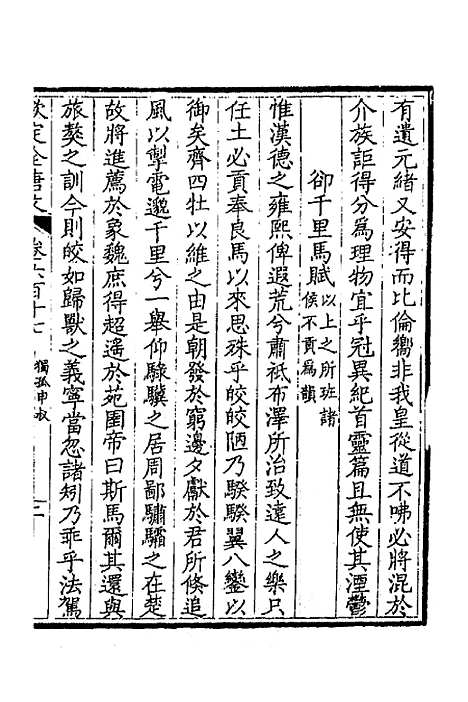 有遺元緒又安得而比倫嚮非我皇從道不咈必將混於
介族詎得分爲理物宜乎冠異紀首靈篇且無使其湮鬱
卻千里馬賦以上之所班諸
侯不貢爲韻
惟漢德之雍熙俾遐荒兮肅祇布澤所洽致遠人之樂只
任土必貢奉良馬以來思殊乎皎皎陋乃騤騤翼八鑾以
御矣齊四牡以維之由是朝發於窮邊夕獻於君所倏追
風以掣電邈千里兮一舉仰騄驥之居周鄙驌驦之在楚
故將進薦於象魏庶得超遙於苑囿帝曰斯馬爾其還與
旅獒之訓今則皎如歸獸之義寧當忽諸矧乃乖乎法駕
欽定全唐文 卷六百十七 獨孤申叔 二